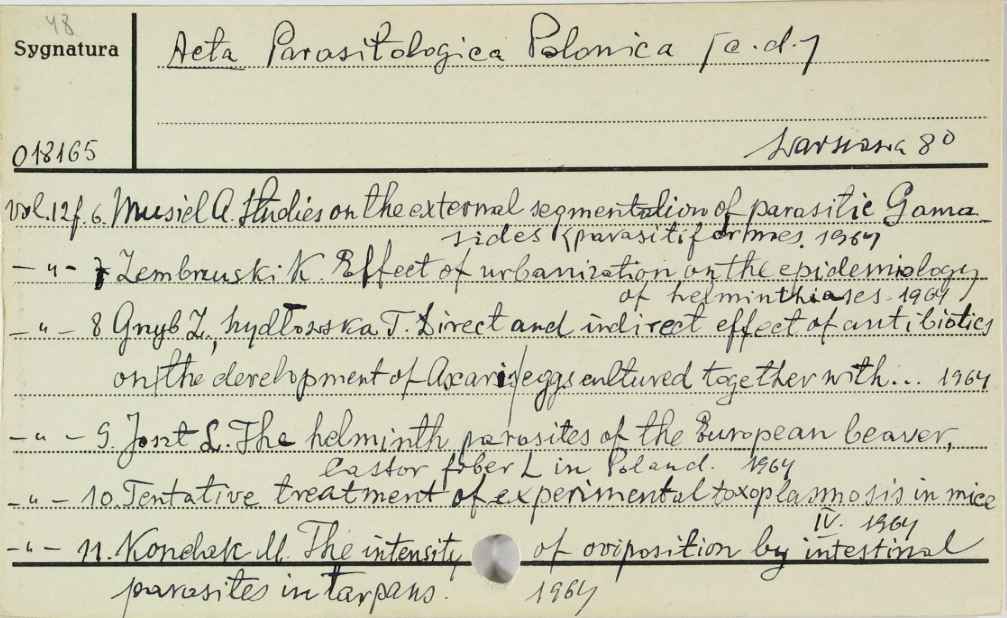 48
Sygnatura
Acta Parasitologica Polonica [c.d.]
018165
Warszawa 80
vol.12 f. 6. Musiel A. Studies on the external segmentation of parasitic Gama-
sides (parasitiformes. 1964
- " - 7 Zembrzuski K. Effect of urbanization on the epidemiology
of helminthiases. 1964
- " - 8 Gnyb Z., Sydłowska T. Direct and indirect effect of antibiotics
on the development of Ascaris eggs cultured together with... 1964
- " - 9. Joszt L. The helminth parasites of the European beaver,
Castor fiber L in Poland. 1964
- " - 10. Tentative treatment of experimental toxoplasmosis in mice
IV. 1964
- " - 11. Kondak M. The intensity of oviposition by intestinal
parasites in tarpans. 1964